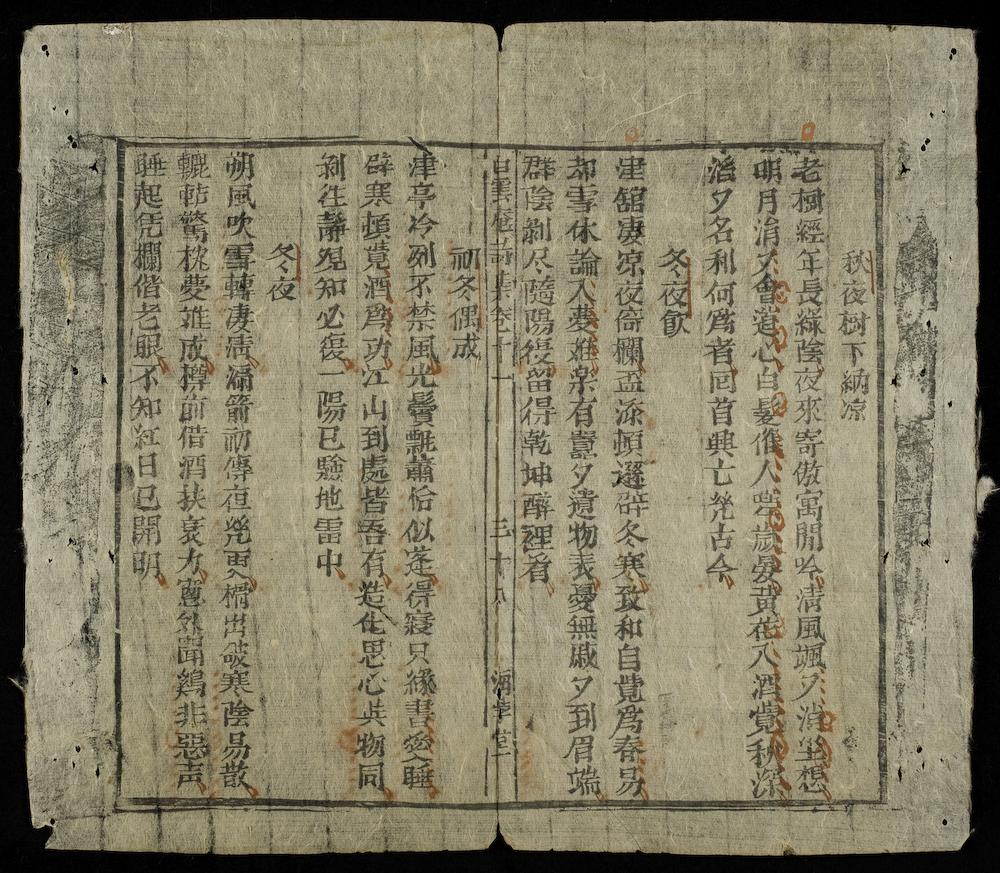 秋夜樹下納凉
老柯經年長緑陰夜來寄傲寓閒吟清風颯〻消塵想
明月涓〻會道心白髮催人嗟歲晏黄花入酒覺秋深
滔〻名利何爲者回首興亡幾古今
冬夜飲
津舘凄凉夜倚欄盃添頓辟冬寒致和自覺爲春易
却雪休論入夢难楽有囂〻遺物表憂無戚〻到眉端
群陰剥尽隨陽復留得乾坤醉裡看
白雲庵詩集卷十一 三十八 海學堂
初冬偶成
津亭冷列不禁風光鬢飄蕭恰似蓬得寢只緣書愛睡
辟寒頓覚酒爲功江山到處皆吾有造化思心與物同
剥往靜观知必復一陽已驗地雷中
冬夜
朔風吹雪轉凄清漏箭初傳夜幾更榾出破寒陰易散
驚枕夢难成樽前借酒扶衰力窻外聞鷄非惡声
睡起凭欄偕老眼不知紅日已開明